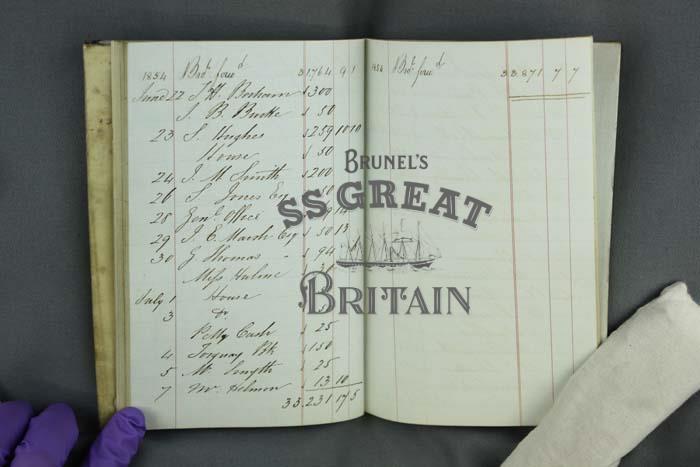 1854 Bro.t forw.d 31764 9 1
June 22 S. H. Bonham " 300
S. B. Burke " 50
23 S. Hughes " 259 10 10
House " 50
24 J. M Smith " 200
26 S. Jones Esq 50
28 Gen.l Office 14
29 J. E. Marsh Esq " 50 13
30 G Thomas " 94
Mess Hulme
July 1 House
3 Do.
Petty Cash " 25
4 Torquay Bk " 150
5 Mr Smyth " 25
7 Mr. Helmon 13 10
33.231 17 5
1854 Bro.t forw.d 33.871 7 7
BRUNEL'S
SS GREAT
BRITAIN